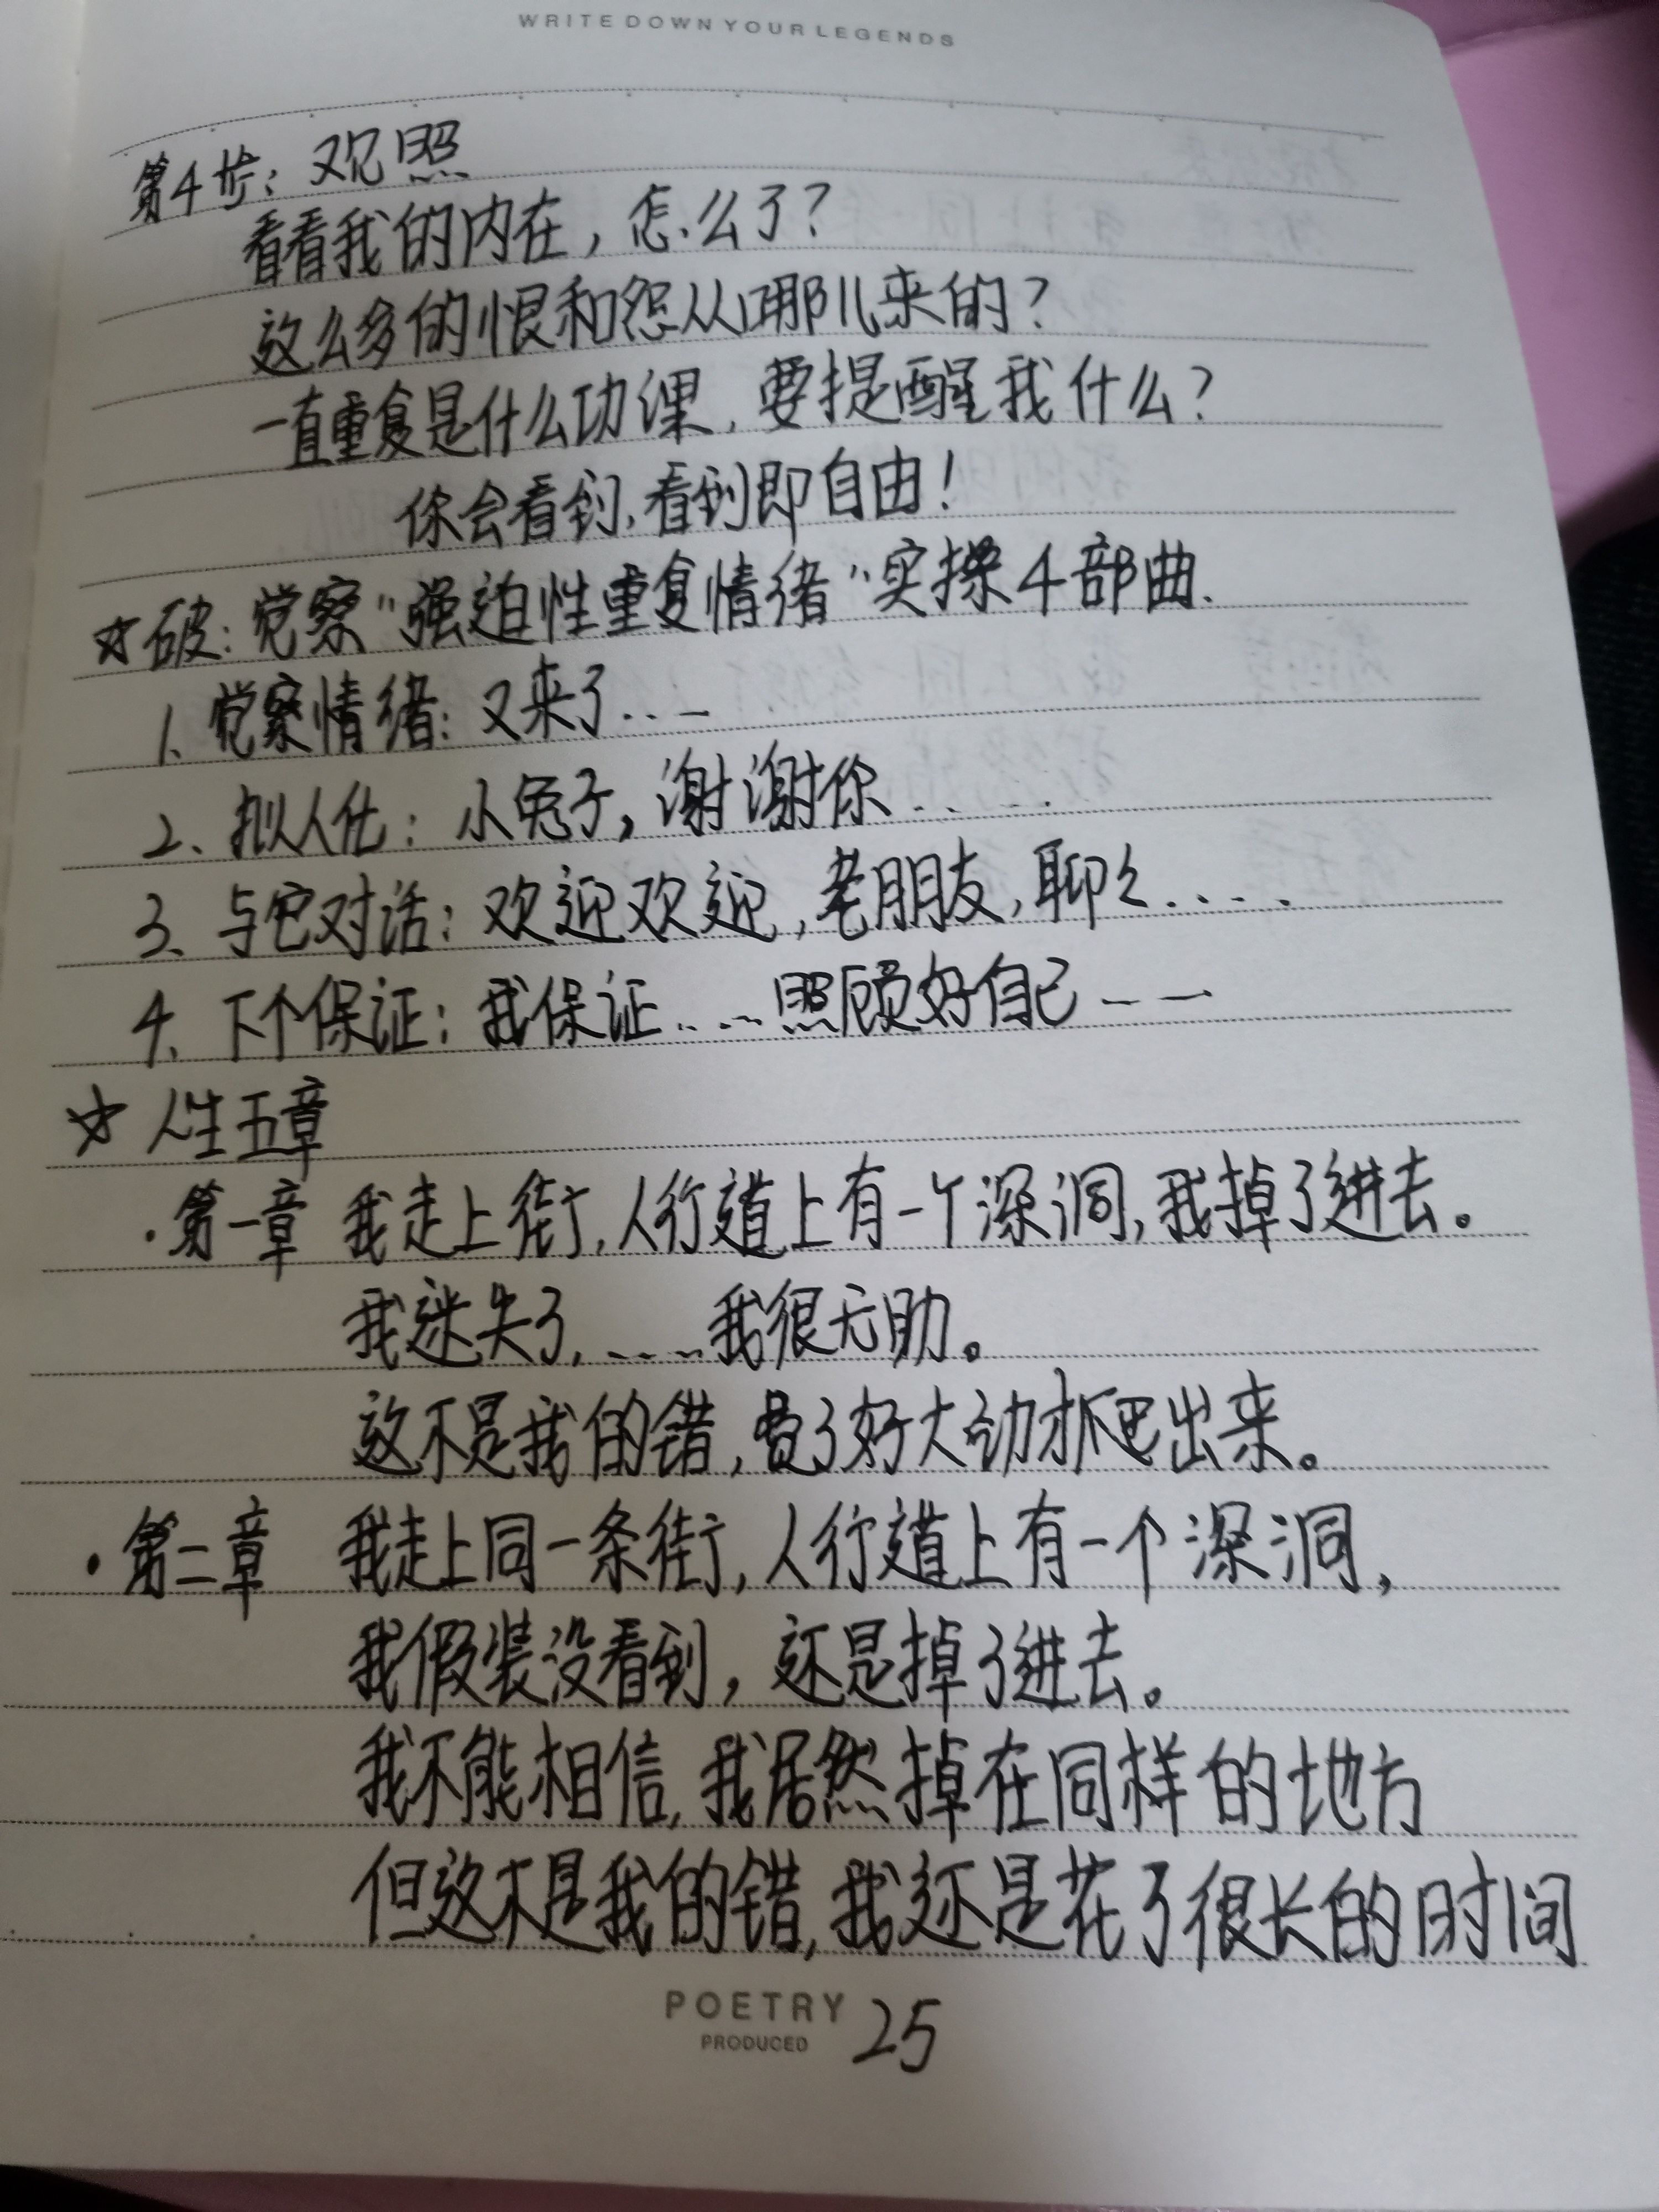 WRITE DOWN YOUR LEGENDS
第4步：观照
看看我的内在，怎么了？
这么多的恨和怨从哪儿来的？
一直重复是什么功课，要提醒我什么？
你会看到，看到即自由！
☆破：觉察“强迫性重复情绪”实操4部曲.
1、觉察情绪：又来了...
2、拟人化：小兔子，谢谢你......
3、与它对话：欢迎欢迎，老朋友，聊々.....
4、下个保证：我保证.....照顾好自己——
☆ 人生五章
·第一章 我走上街，人行道上有一个深洞，我掉了进去。
我迷失了，....我很无助。
这不是我的错，费了好大劲才爬出来。
·第二章 我走上同一条街，人行道上有一个深洞，
我假装没看到，还是掉了进去。
我不能相信，我居然掉在同样的地方
但这不是我的错，我还是花了很长的时间
POETRY 25
PRODUCED